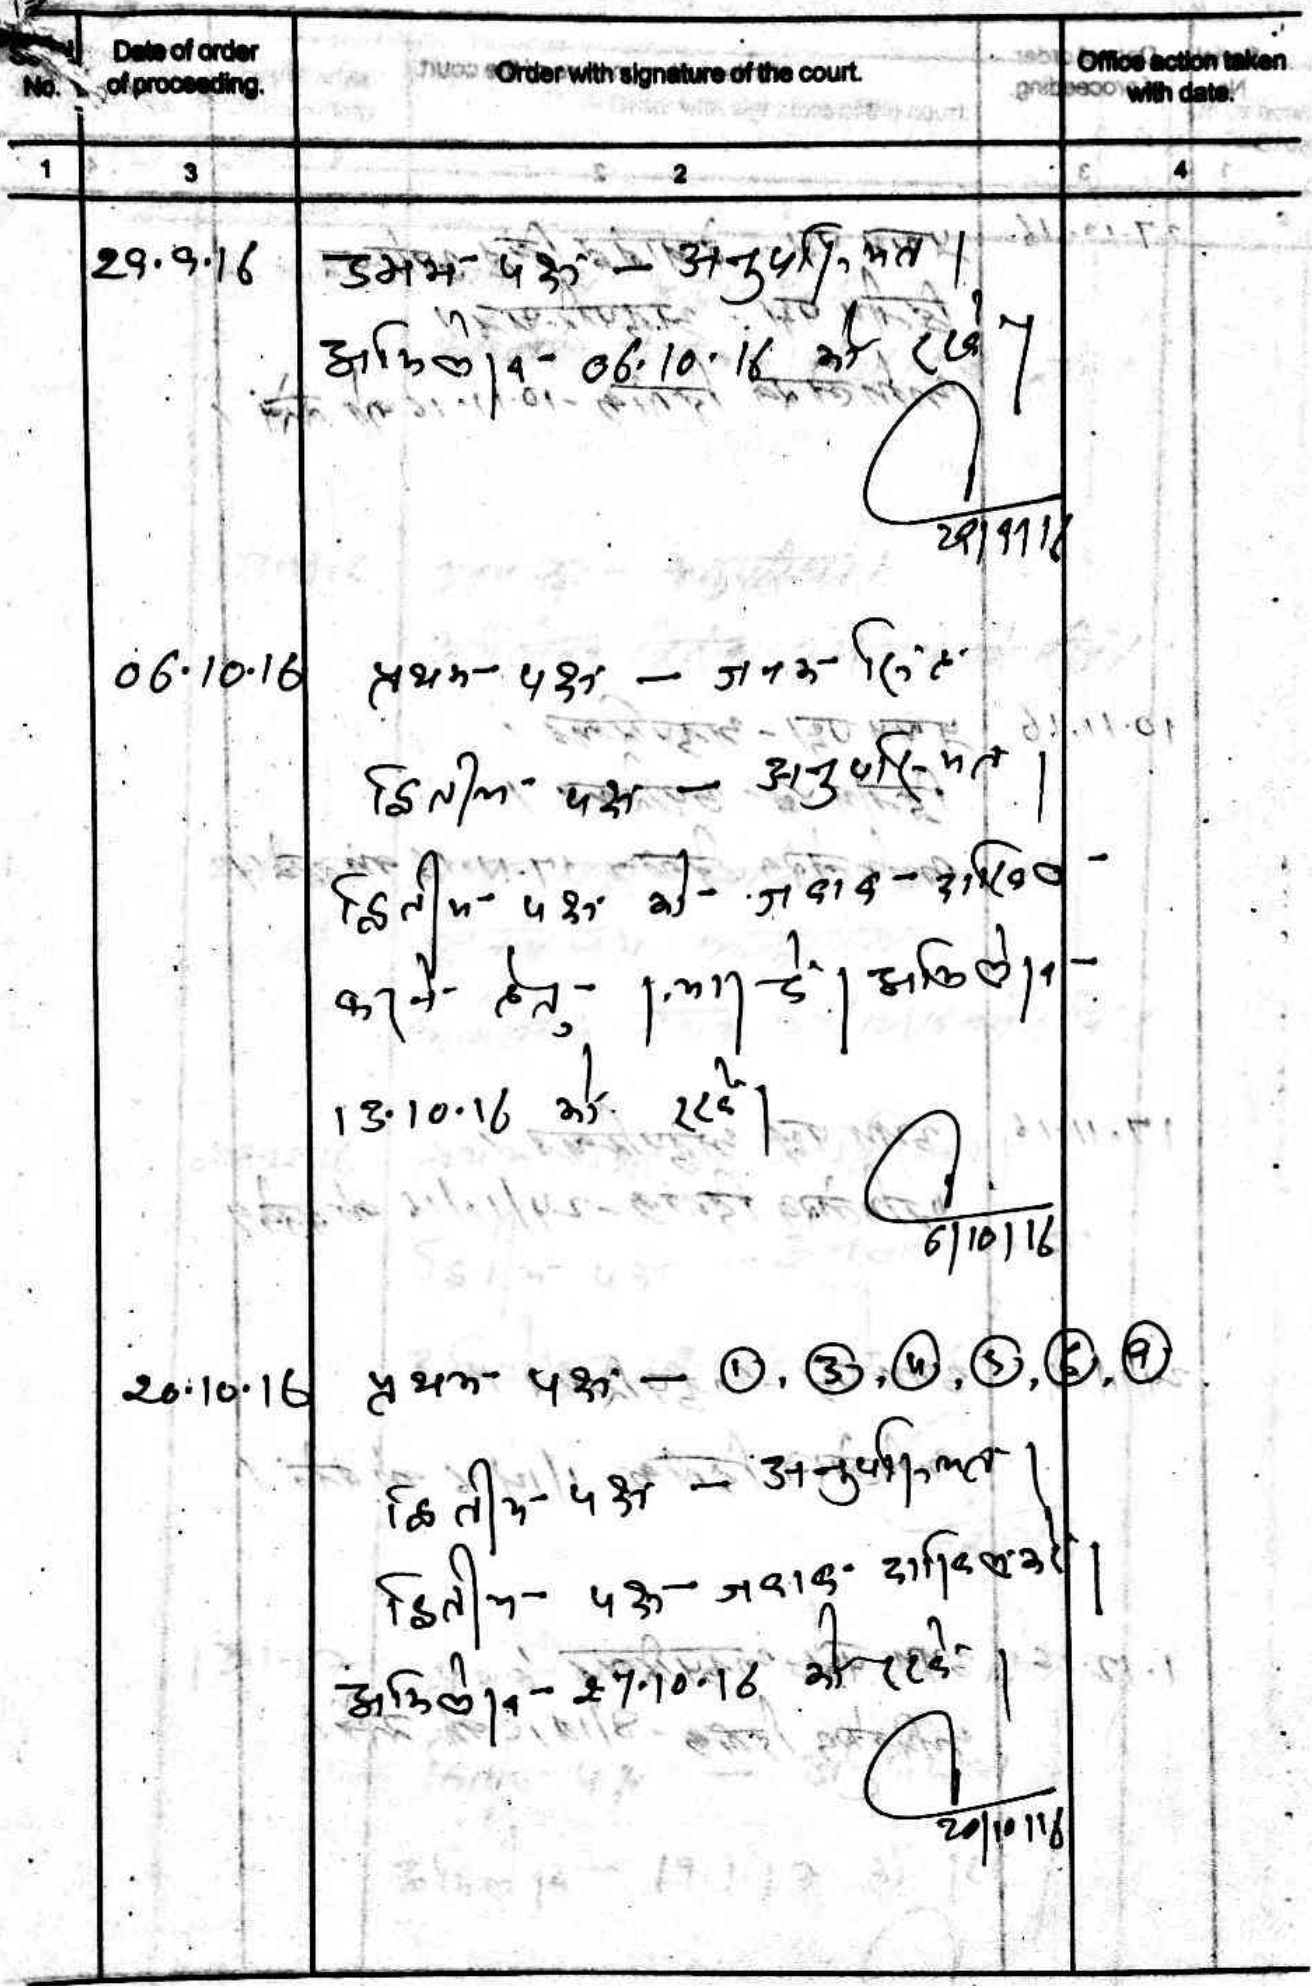 Serial No. Date of order of proceeding. Order with signature of the court. Office action taken with date.
1 3 2 4
29.9.16 उभय पक्ष - अनुपस्थित।
अभिलेख 06.10.16 को रखें।
29/9/16
06.10.16 प्रथम पक्ष - जनक सिंह
द्वितीय पक्ष - अनुपस्थित।
द्वितीय पक्ष को जवाब दाखिल
करने हेतु । अभिलेख
13.10.16 को रखें।
6/10/16
20.10.16 प्रथम पक्ष - ①, ③, ④, ⑤, ⑥, ⑨
द्वितीय पक्ष - अनुपस्थित।
द्वितीय पक्ष जवाब दाखिल करें।
अभिलेख 27.10.16 को रखें।
20/10/16